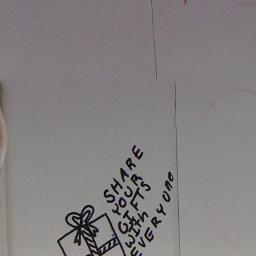 SHARE
YOUR
GIFTS
WITH
EVERYONE